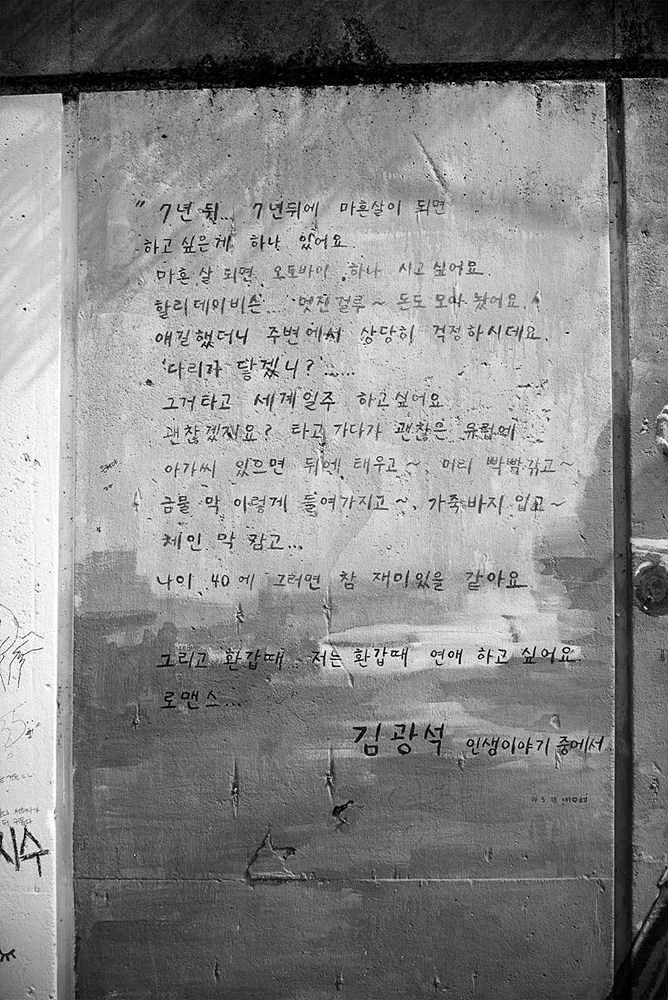 " 7년 뒤... 7년뒤에 마흔살이 되면
하고 싶은게 하나 있어요
마흔 살 되면 오토바이 하나 사고 싶어요
할리데이비슨... 멋진걸루~ 돈도 모아 놨어요.
얘길했더니 주변에서 상당히 걱정하시데요.
'다리가 닿겠니?'......
그거타고 세계일주 하고싶어요
괜찮겠지요? 타고가다가 괜찮은 유럽에
아가씨 있으면 뒤에 태우고~. 머리 빡빡 깎고~
금물 막 이렇게 들여가지고~. 가죽바지 입고~
체인 막 감고...
나이 40에 그러면 참 재미있을 같아요
그리고 환갑때 저는 환갑때 연애 하고 싶어요
로맨스...
김광석 인생이야기 중에서..
시수